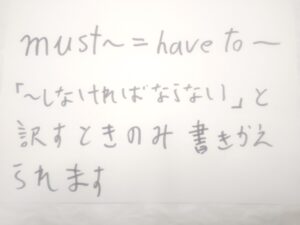 must~=have to ~
「~しなければならない」と
訳すときのみ 書きかえ
られます